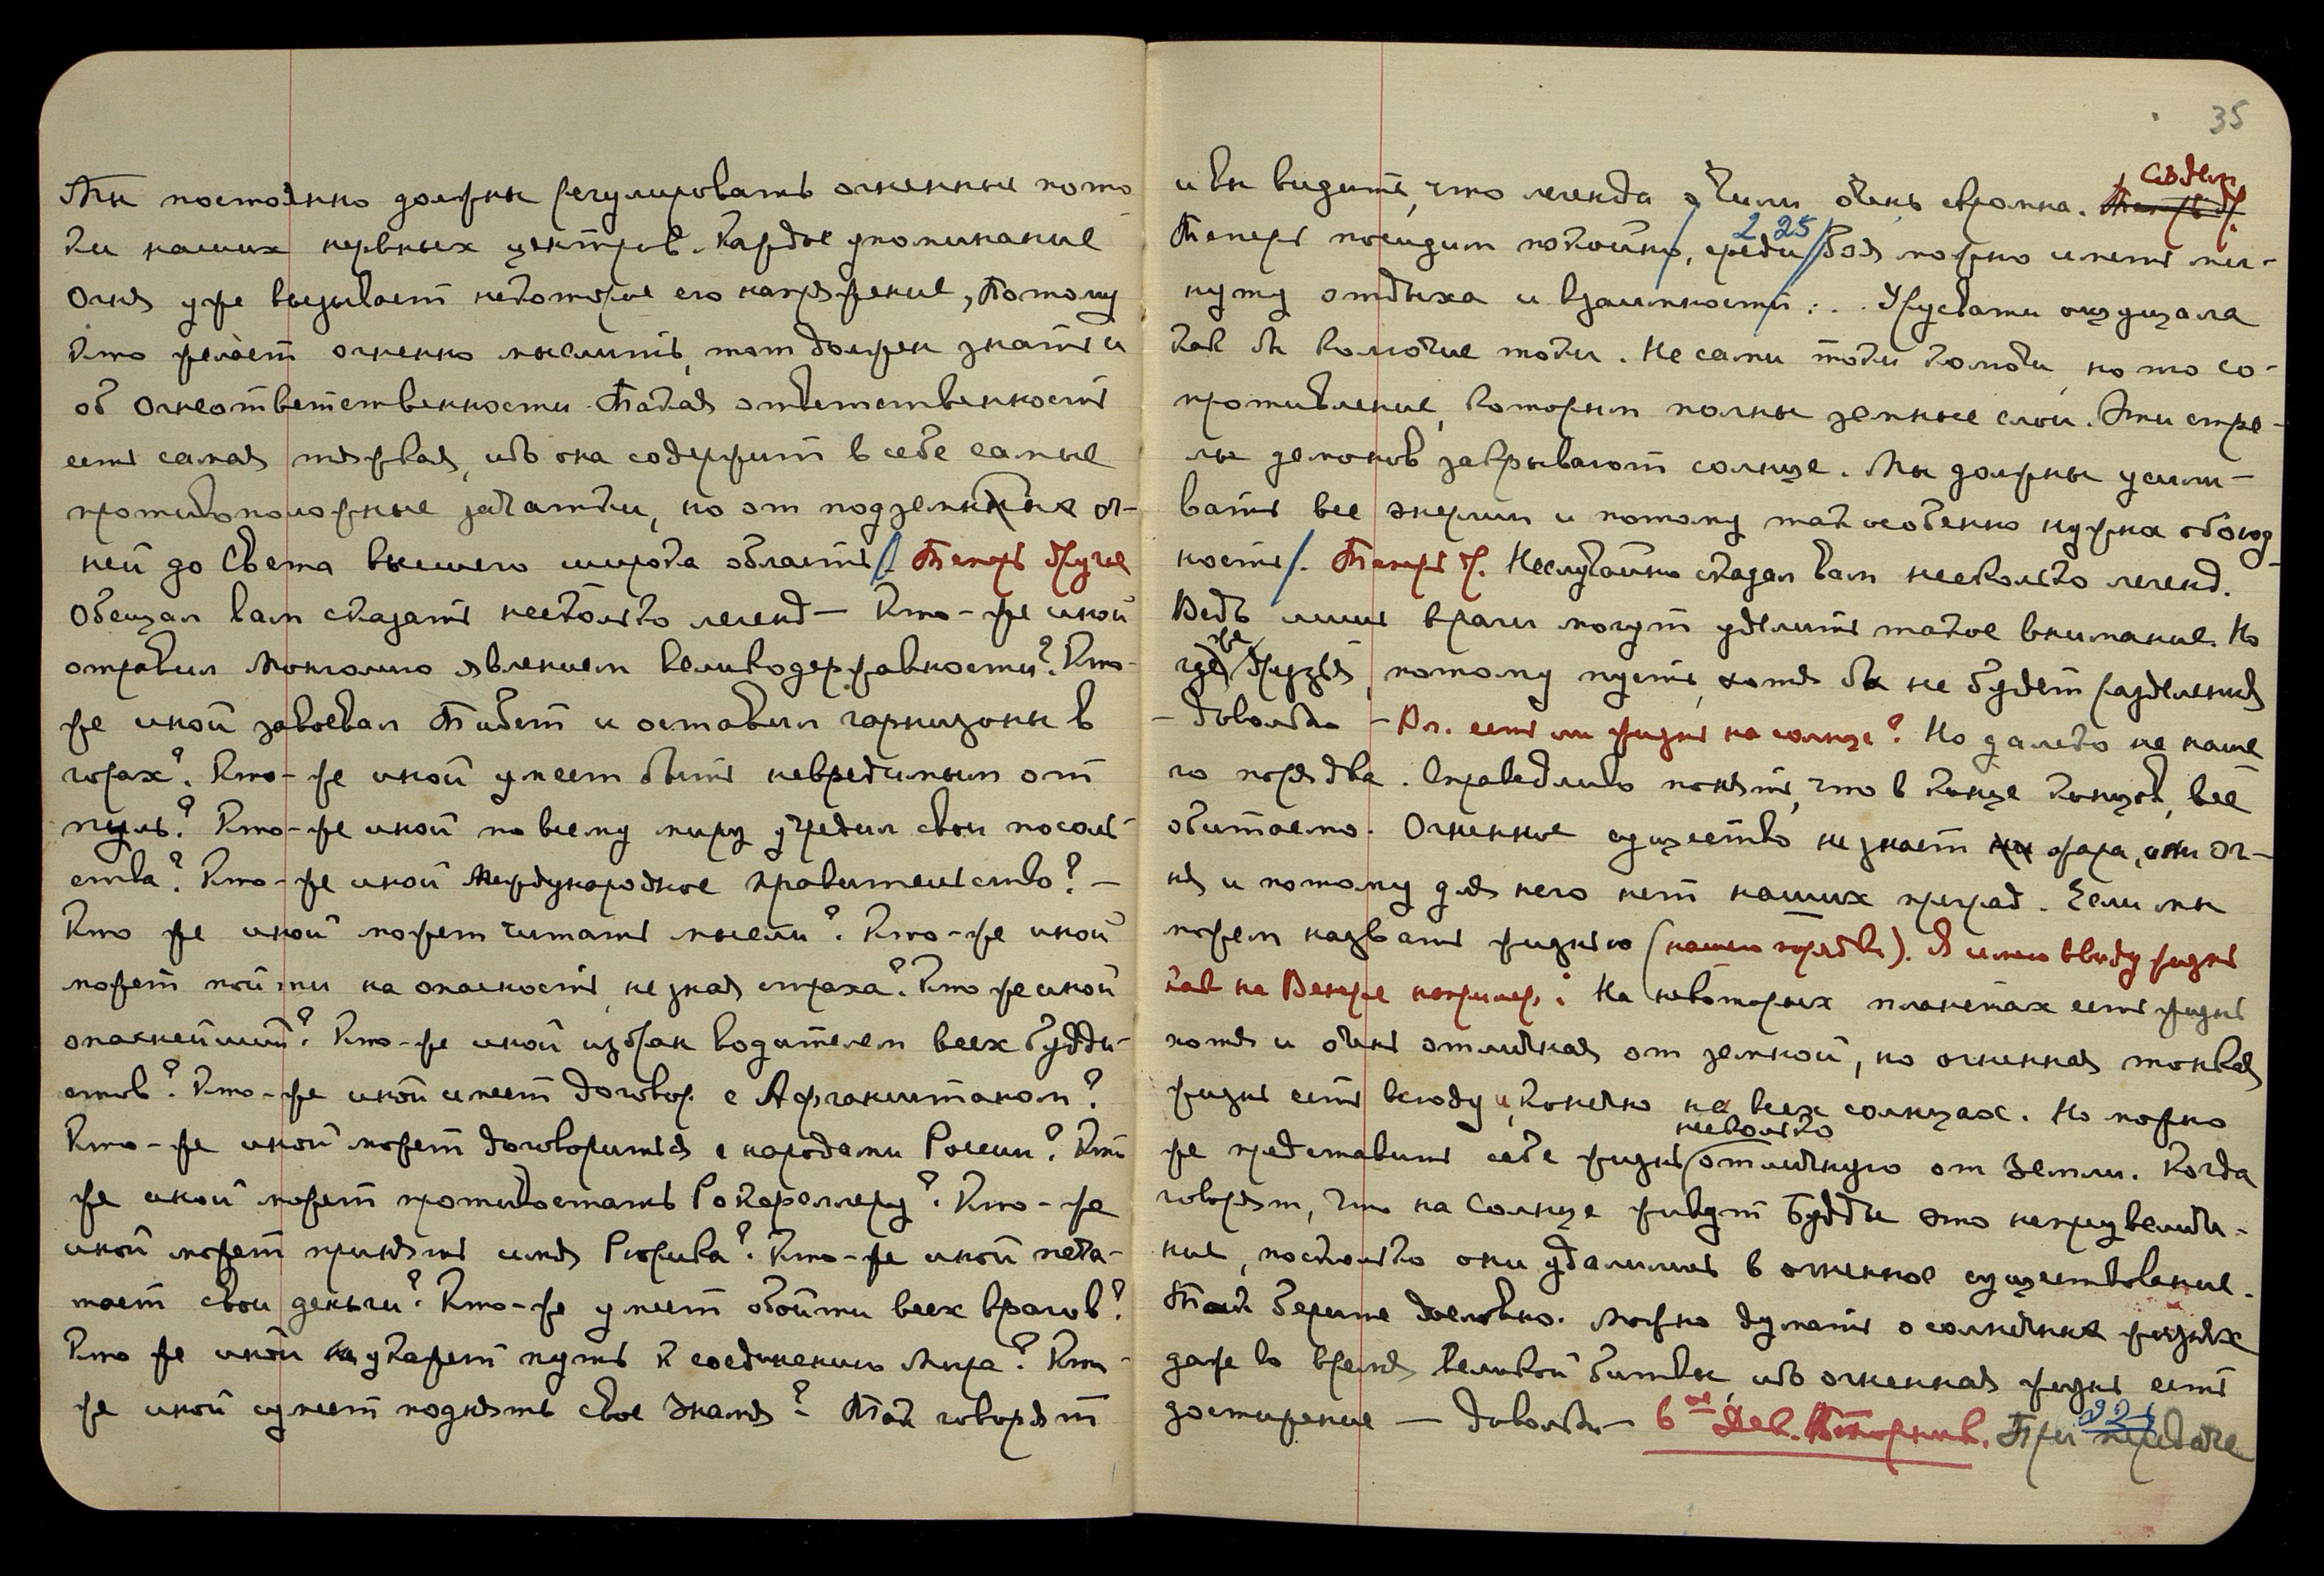 Мы постоянно должны регулировать огненные пото-
ки наших нервных центров. Каждое упоминание
Огня уже вызывает некоторое его напряжение, Потому
кто желает огненно мыслить, тот должен знать и
об Огнеответственности. Такая ответственность
есть самая тяжкая, ибо она содержит в себе самые
противоположные зачатки, но от подземных ог-
ней до Света высшего широка область/. Теперь другое
Обещал вам сказать несколько легенд — Кто-же иной
отравил Монголию явлением великодержавности? Кто-
же иной завоевал Тибет и оставил гарнизоны в
горах? Кто-же иной умеет быть невредимым от
пуль? Кто-же иной по всему миру учредил свои посоль-
ства? Кто-же иной Международное правительство? —
Кто же иной может читать мысли? Кто-же иной
может пойти на опасность, не зная страха? Кто же иной
опаснейший? Кто-же иной избран водителем всех Будди-
стов? Кто-же иной имеет договор с Афганистаном?
Кто-же иной может договориться с народами России? Кто
же иной может противостать Рокфеллеру? Кто-же
иной может принять имя Рюрика? Кто-же иной печа-
тает свои деньги? Кто-же умеет обойти всех врагов?
Кто же иной укажет путь к соединению Мира? Кто-
же иной сумеет поднять свое Знамя? Так говорят
35
и вы видите, что легенда о Чили очень скромна.
Теперь посидим покойно/, среди/боя можно иметь ми-
2 25
нуту отдыха и взаимности: . . Урусвати ощущала
как бы колючие токи. Не сами токи колючи, но то со-
противление, которым полны земные слои. Эти стре-
лы демонов закрывают солнце. Мы должны усили-
вать все энергии и потому так особенно нужна обоюд-
ность/. Теперь др. Не случайно сказал вам несколько легенд.
Ведь лишь враги могут уделить такое внимание. Но
где же друзья, потому пусть, хотя бы не будет разделения
— довольно — Вл. есть ли жизнь на солнце? Но далеко не наше
го порядка. Справедливо понять, что в конце концов, всё
обитаемо. Огненное существо не знает жара, они ог-
ня и потому для него нет наших преград. Если мы
можем назвать жизнью (нашего порядка). Я имею ввиду жизнь
как на Венере например: На некоторых планетах есть жизнь
хотя и очень отличная от земной, но огненная тонкая
жизнь есть всюду и, конечно на всех солнцах. Но можно
же представить себе жизнь несколько отличную от Земли. Когда
говорят, что на Солнце живут Будды это непреувеличе-
ние, поскольку они удалились в огненное существование.
Так берите дословно. Можно думать о солнечных жизнях
даже во время великой битвы, ибо огненная жизнь есть
достижение — Довольно — 6ое Дек. Вторник. При передаче